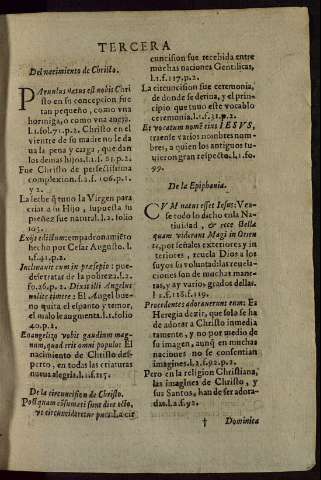 TERCERA
Del nacimiento de Christo.
PArvulus natus est nobis Chri
sto en su concepcion fue
tan pequeño, como vna
hormiga, o como vna aueja.
l.1.fol.71.p.2. Christo en el
vientre de su madre no le da
ua la pena y carga, que dan
los demas hijos. l.1.f. 81.p.2.
Fue Christo de perfectissima
complexion. f.2. f. 106.p.1.
y 2.
La leche que tuuo la Virgen para
criar a su Hijo, supuesta su
preñez fue natural. l.2. folio
103.
Exijt edictum: empadronamiẽto
hecho por Cesar Augusto. l.
1.f.41.p.2.
Inclinauit eum in præsepio: pue
dese tratar de la pobreza. l.2.
fo.26.p.2. Dixit illis Angelus
nolite timere: El Angel bue
no quita el espanto y temor,
el malo le augmenta. l.1. folio
40.p.2.
Euangelizo vobis gaudium mag-
num, quod erit omni populo: El
nacimiento de Christo des-
perto, en todas las criaturas
nueua alegria. l.1.f.117.
De la circuncision de Christo.
Postquam cõsumati sunt dies octo,
vt circuncideretur puer: La cir
cuncision fue recebida entre
muchas naciones Gentilicas,
l.1.f.117.p.2.
La circuncision fue ceremonia,
de donde se deriua, y el prin-
cipio que tuuo este vocablo
ceremonia. l.1.f.31.p.2.
Et vocatum nomẽ eius IESVS,
traense varios nombres nom-
bres, a quien los antiguos tu-
uieron gran respecto. l.1.fo.
99.
De la Epiphania.
CVM natus esset Iesus: Vea-
se todo lo dicho en la Na-
tiuidad, & ecce stella
quam viderant Magi in Orien
te, por señales exteriores y in
teriores, reuela Dios a los
suyos su voluntad: las reuela-
ciones son de muchas mane-
ras, y ay varios grados dellas.
l.1.f.118.f.119.
Procedentes adorauerunt eum: Es
Heregia dezir, que solo se ha
de adorar a Christo inmedia
tamente, y no por medio de
su imagen, aunq̃ en muchas
naciones no se consentian
imagines. l.2.f.92.p.2.
Pero en la religion Christiana,
las imagines de Christo, y
sus Santos, han de ser adora-
das. l.2.f.92.
† Dominica